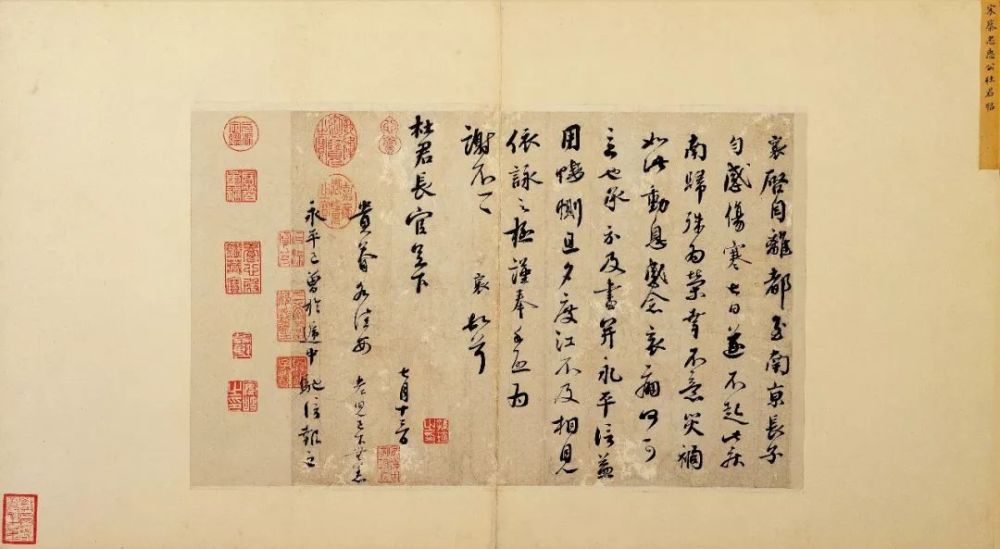 宋蔡忠惠公杜君帖
襄啓自離都至南京長子
勻感傷寒七日遂不起此疾
南歸殊爲榮幸不意災禍
如此動息感念哀痛何可
言也承示及書并永平信益
用悽惻旦夕度江不及相見
依詠之極謹奉手啓爲
謝不一一
襄頓首
杜君長官足下
七月十三日
貴眷各佳安
老兒已下無恙
永平已曾於遞中馳信報之